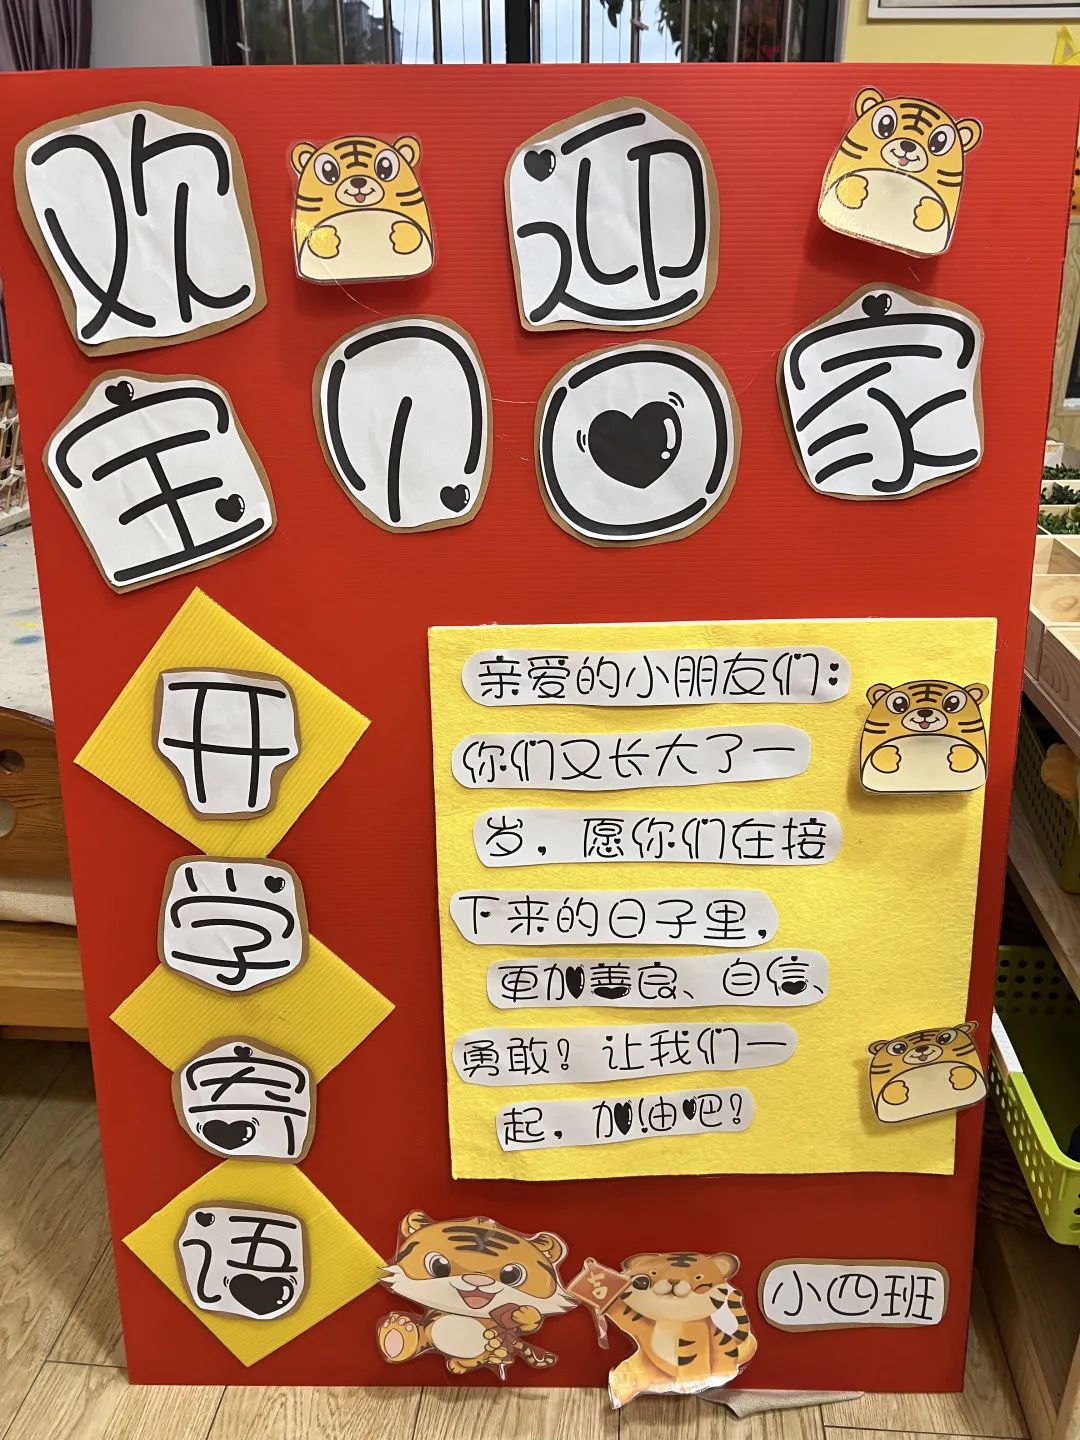 欢迎
宝贝回家
开学寄语
亲爱的小朋友们：
你们又长大了一
岁，愿你们在接
下来的日子里，
更加善良、自信、
勇敢？让我们一
起，加油吧？
吉
小四班